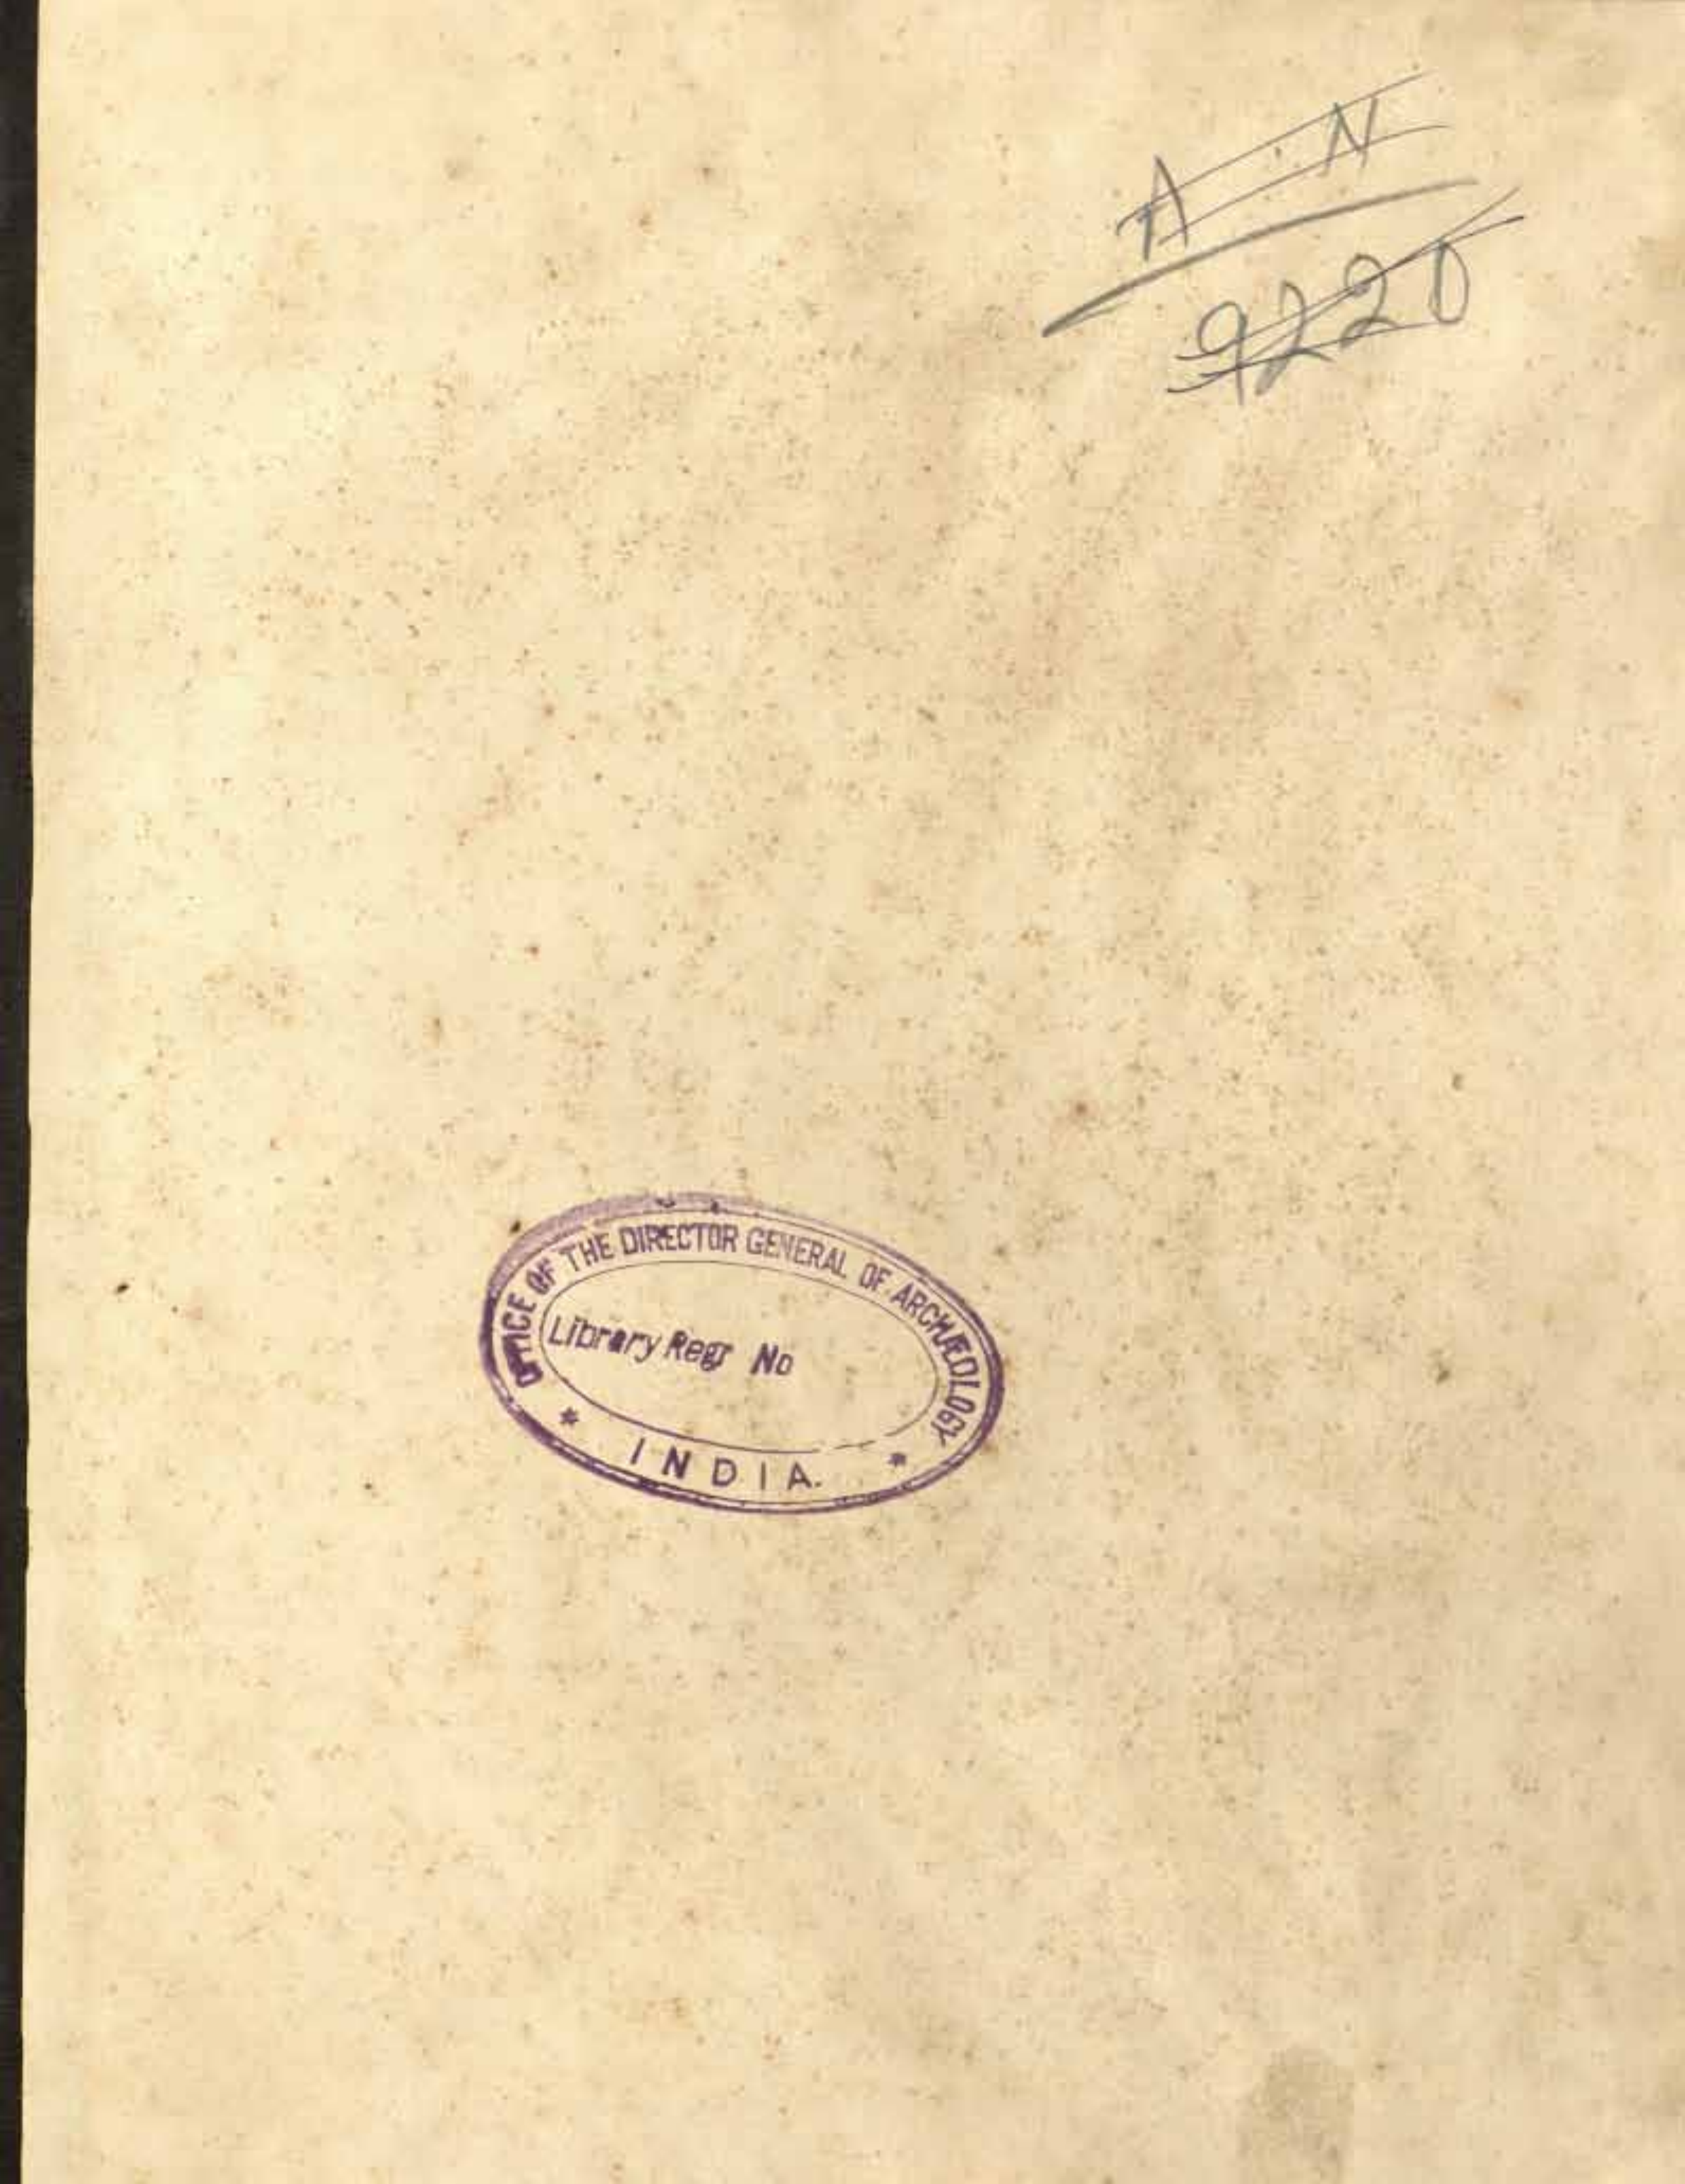 A. N
9220
OFFICE OF THE DIRECTOR GENERAL OF ARCHÆOLOGY
Library Regr No
* INDIA. *